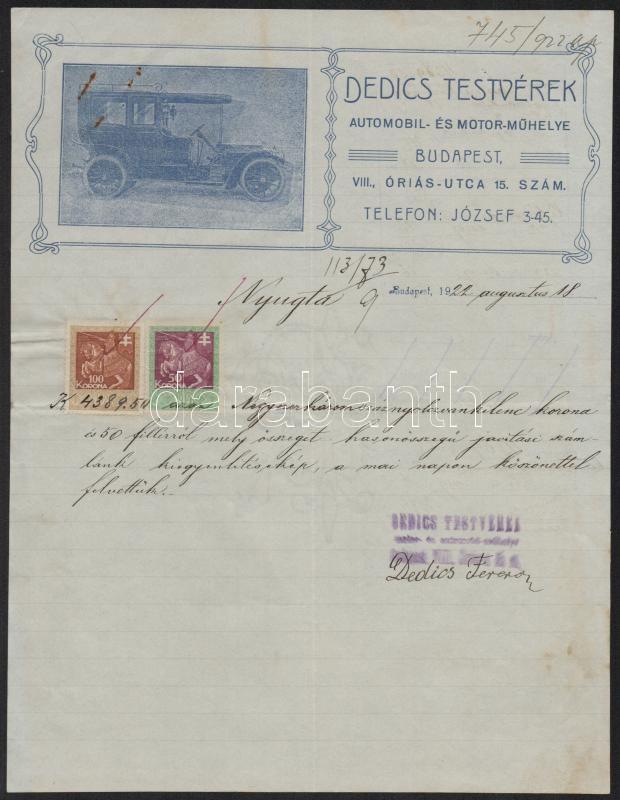 745/922
DEDICS TESTVÉREK
AUTOMOBIL- ÉS MOTOR-MŰHELYE
BUDAPEST,
VIII., ÓRIÁS-UTCA 15. SZÁM.
TELEFON: JÓZSEF 3-45.
113/73
Nyugta
Budapest, 1922 augusztus 18
100
KORONA
50
KORONA
K 4389.50 azaz Négyezerháromszáznyolcvankilenc korona
és 50 fillérről mely összeget hasonösszegű javítási szám-
lánk kiegyenlítéseképp, a mai napon köszönettel
felvettük.-
darabanth
DEDICS TESTVÉREK
Dedics Ferenc